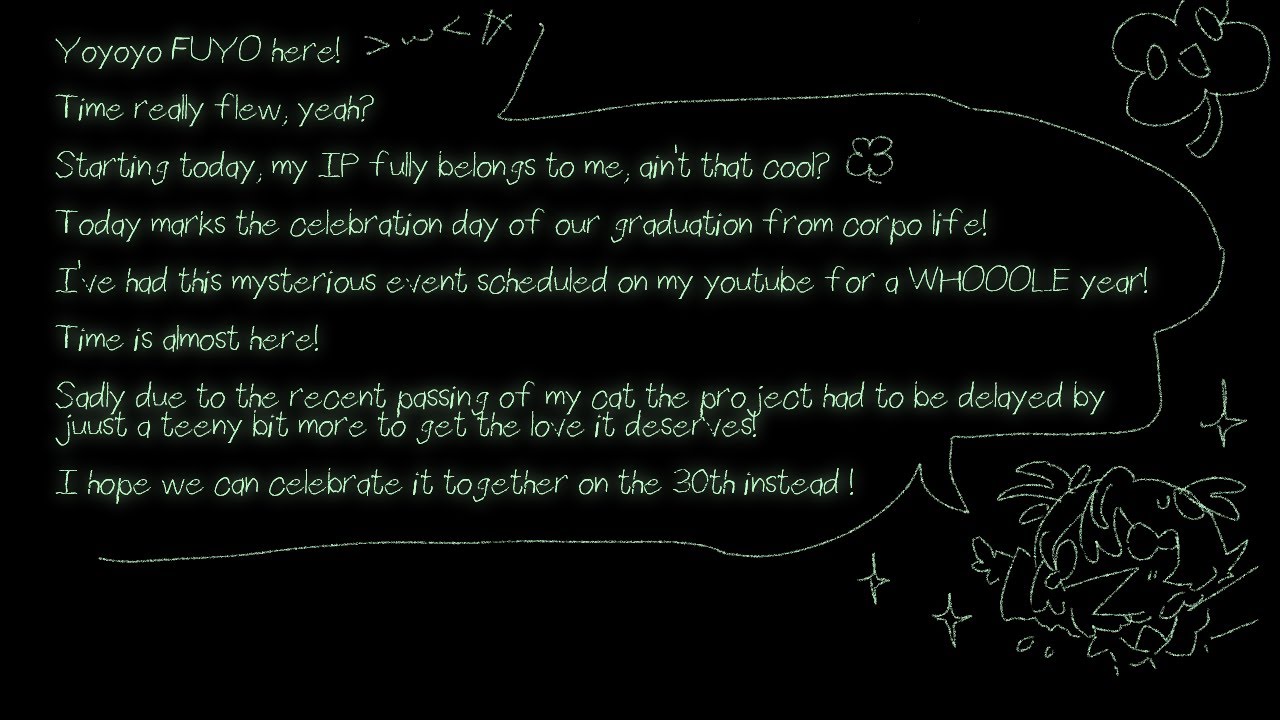 Yoyoyo FUYO here! >w<
Time really flew, yeah?
Starting today, my IP fully belongs to me, ain't that cool?
Today marks the celebration day of our graduation from corpo life!
I've had this mysterious event scheduled on my youtube for a WHOOOLE year!
Time is almost here!
Sadly due to the recent passing of my cat the project had to be delayed by
juust a teeny bit more to get the love it deserves!
I hope we can celebrate it together on the 30th instead !